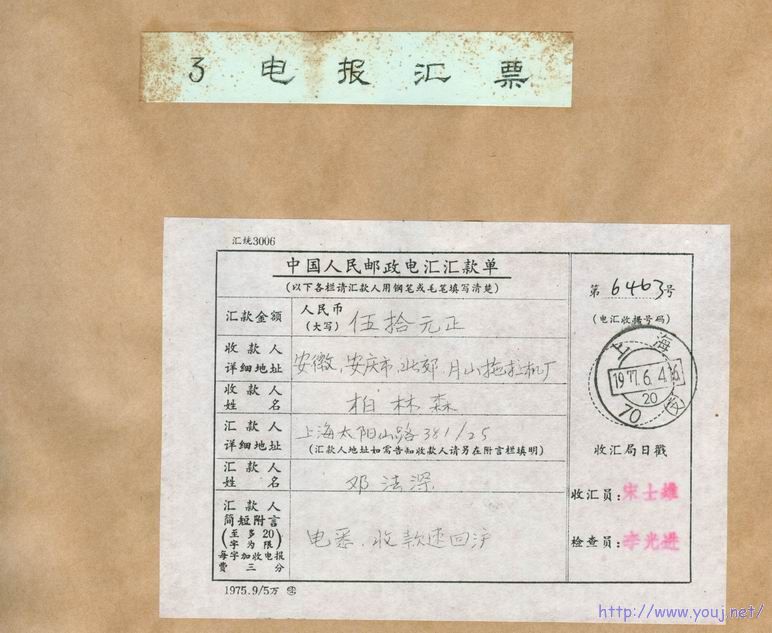 3 电报汇票
汇统3006
中国人民邮政电汇汇款单
(以下各栏请汇款人用钢笔或毛笔填写清楚)
第6463号
(电汇收据号码)
汇款金额
人民币
(大写) 伍拾元正
收款人
详细地址
安徽、安庆市、北郊、月山拖拉机厂
收款人
姓名
柏林森
汇款人
详细地址
上海太阳山路381/25
(汇款人地址如需告知收款人请另在附言栏填明)
汇款人
姓名
邓法深
汇款人
简短附言
(至多20
字为限)
每字加收电报
费三分
电悉、收款速回沪
上海
1977.6.4.16
20
70 支
收汇局日戳
收汇员：宋士雄
检查员：李光进
1975.9/5万
http://www.youj.net/